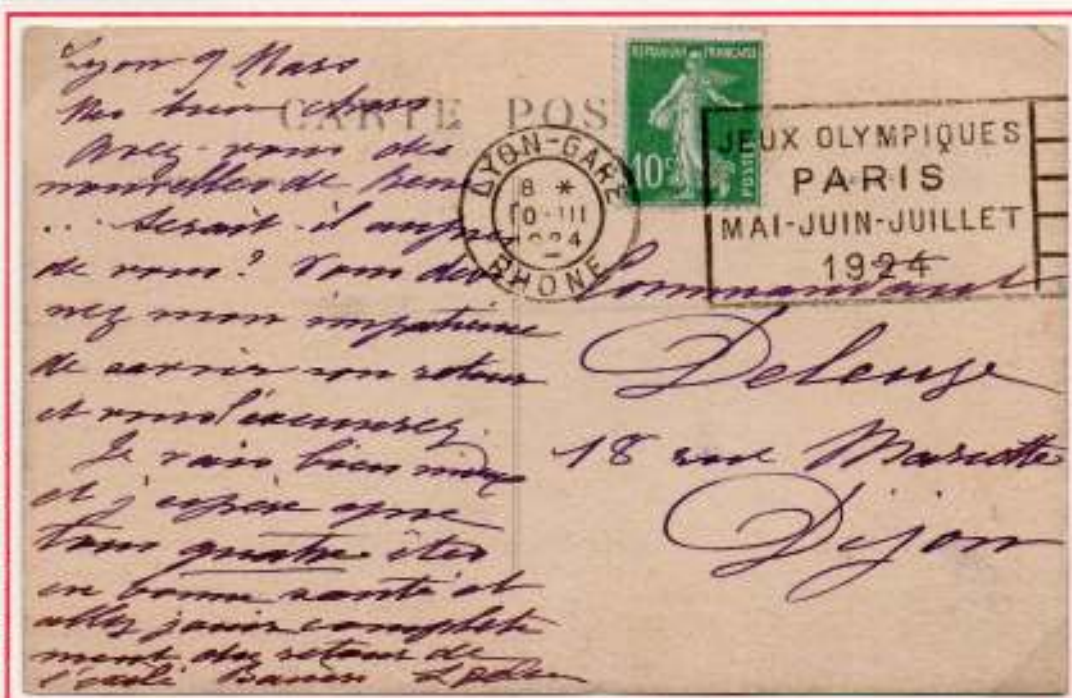 Lyon 9 Mars
Mes bien chers
Avez-vous des
nouvelles de
.. Serait-il auprès
de vous? Vous devi
nez mon impatience
de savoir son retour
et vous l'excuserez.
Je vais bien mieux
et j'espère que
tous quatre êtes
en bonne santé et
allez jouir complète
ment du retour de
l'exilé
CARTE POS
REPUBLIQUE FRANÇAISE
10c
POSTES
LYON-GARE
8 *
10-III
1924
RHONE
JEUX OLYMPIQUES
PARIS
MAI-JUIN-JUILLET
1924
Commandant
Deleuze
18 rue Mariotte
Dijon